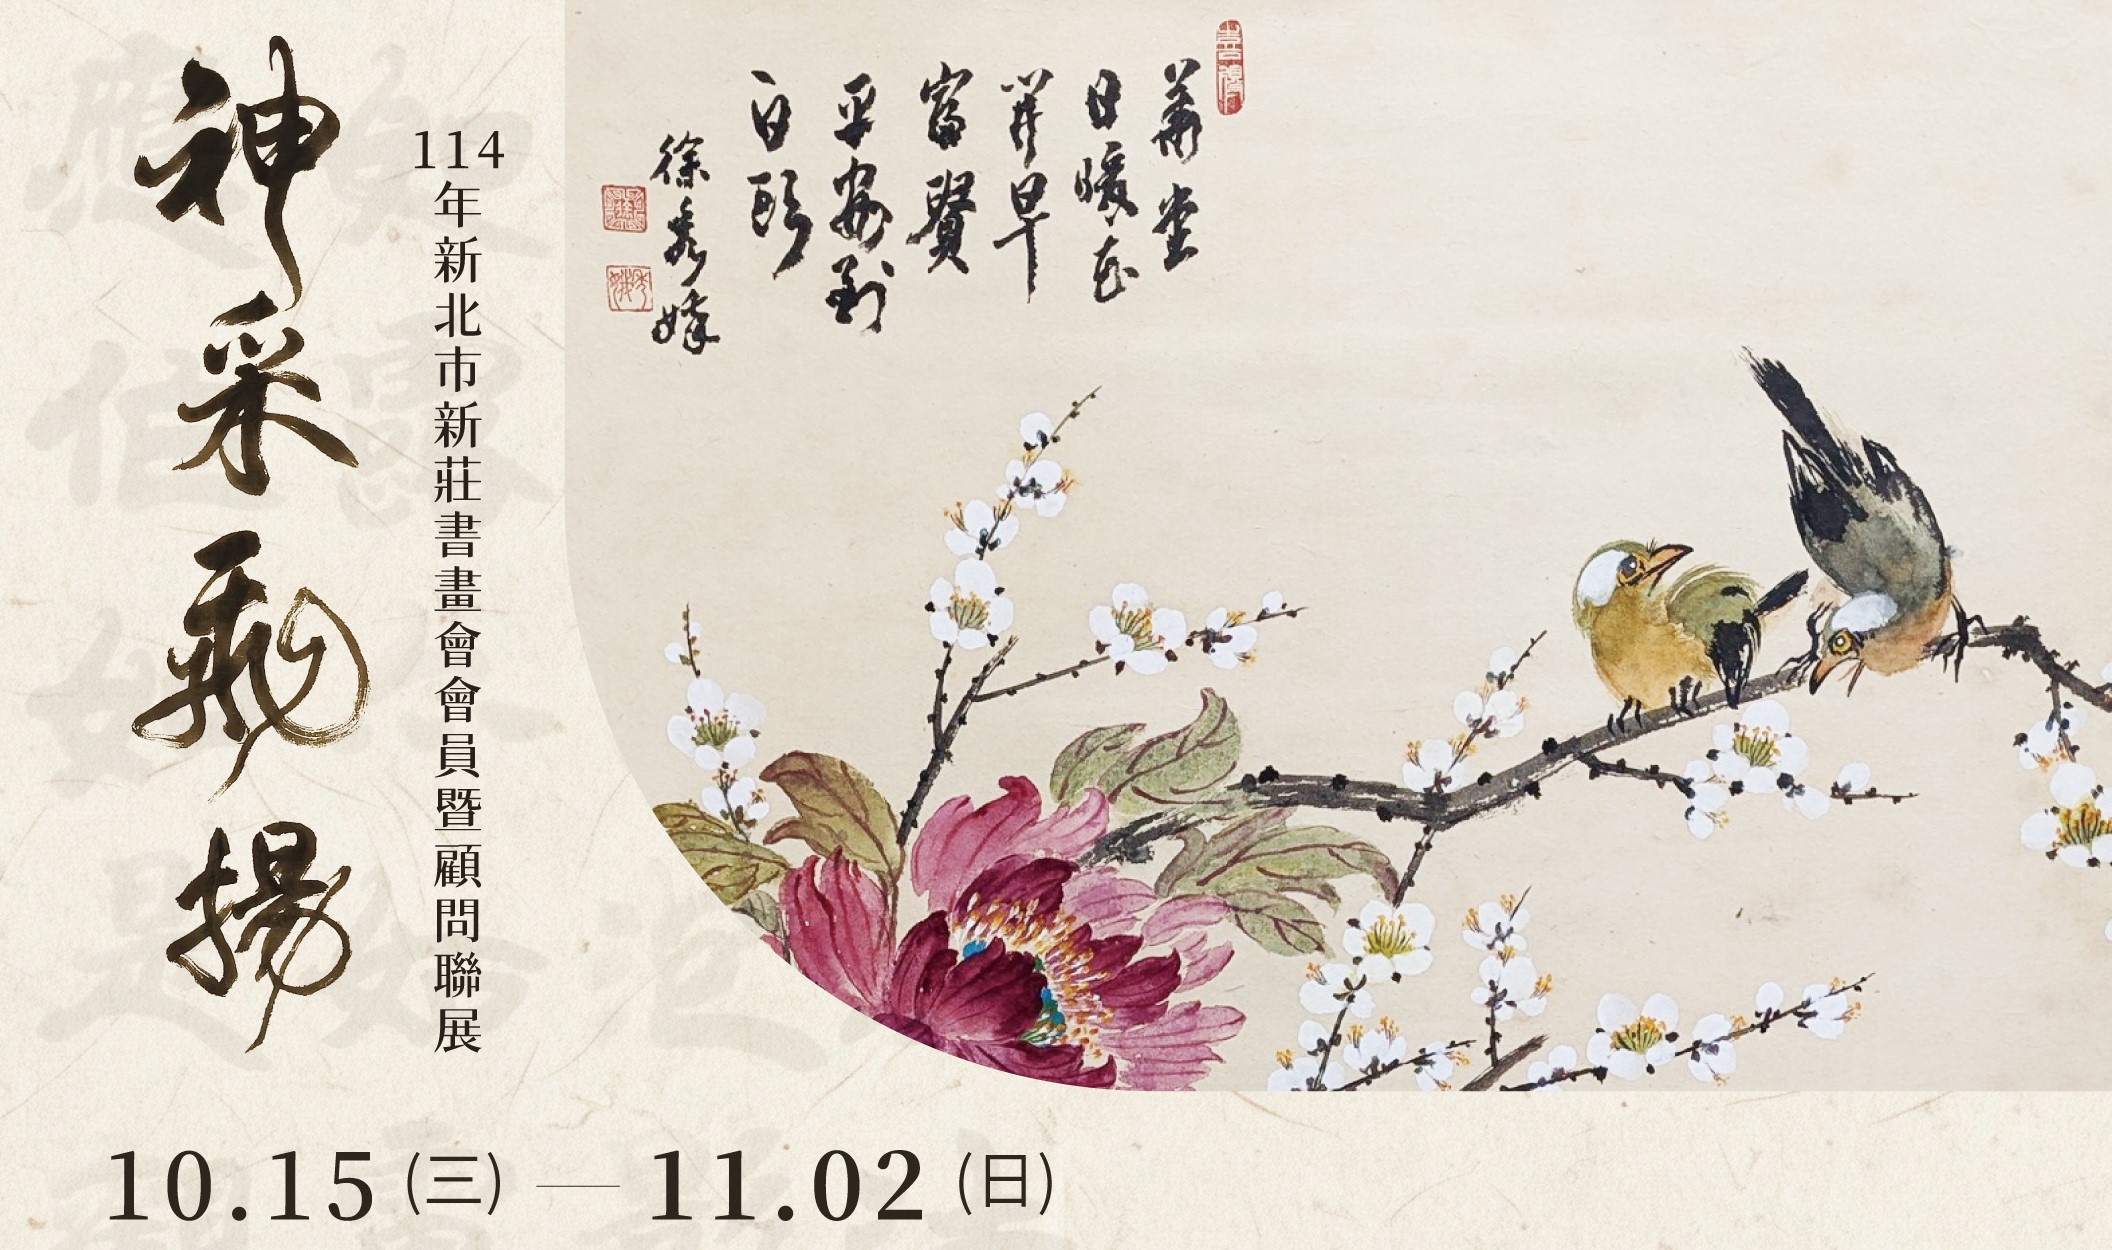 神采飛揚
114年新北市新莊書畫會會員暨顧問聯展
華堂
日暖花
開早
富貴
平安到
白頭
徐秀
10.15(三)—11.02(日)